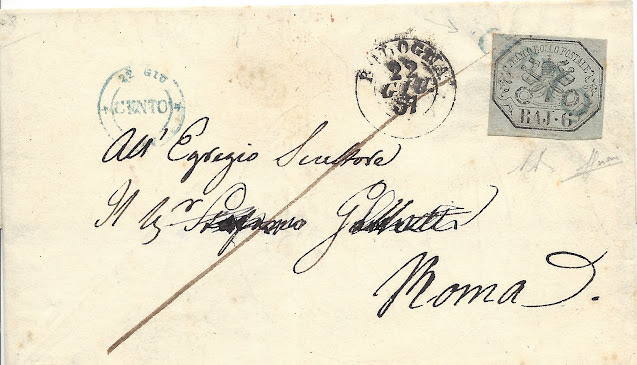 22 GIU
CENTO
BOLOGNA
22
GIU
57
FRANCO BOLLO POSTALE
BAJ-6
All' Egregio Scultore
Il Sigr
Roma